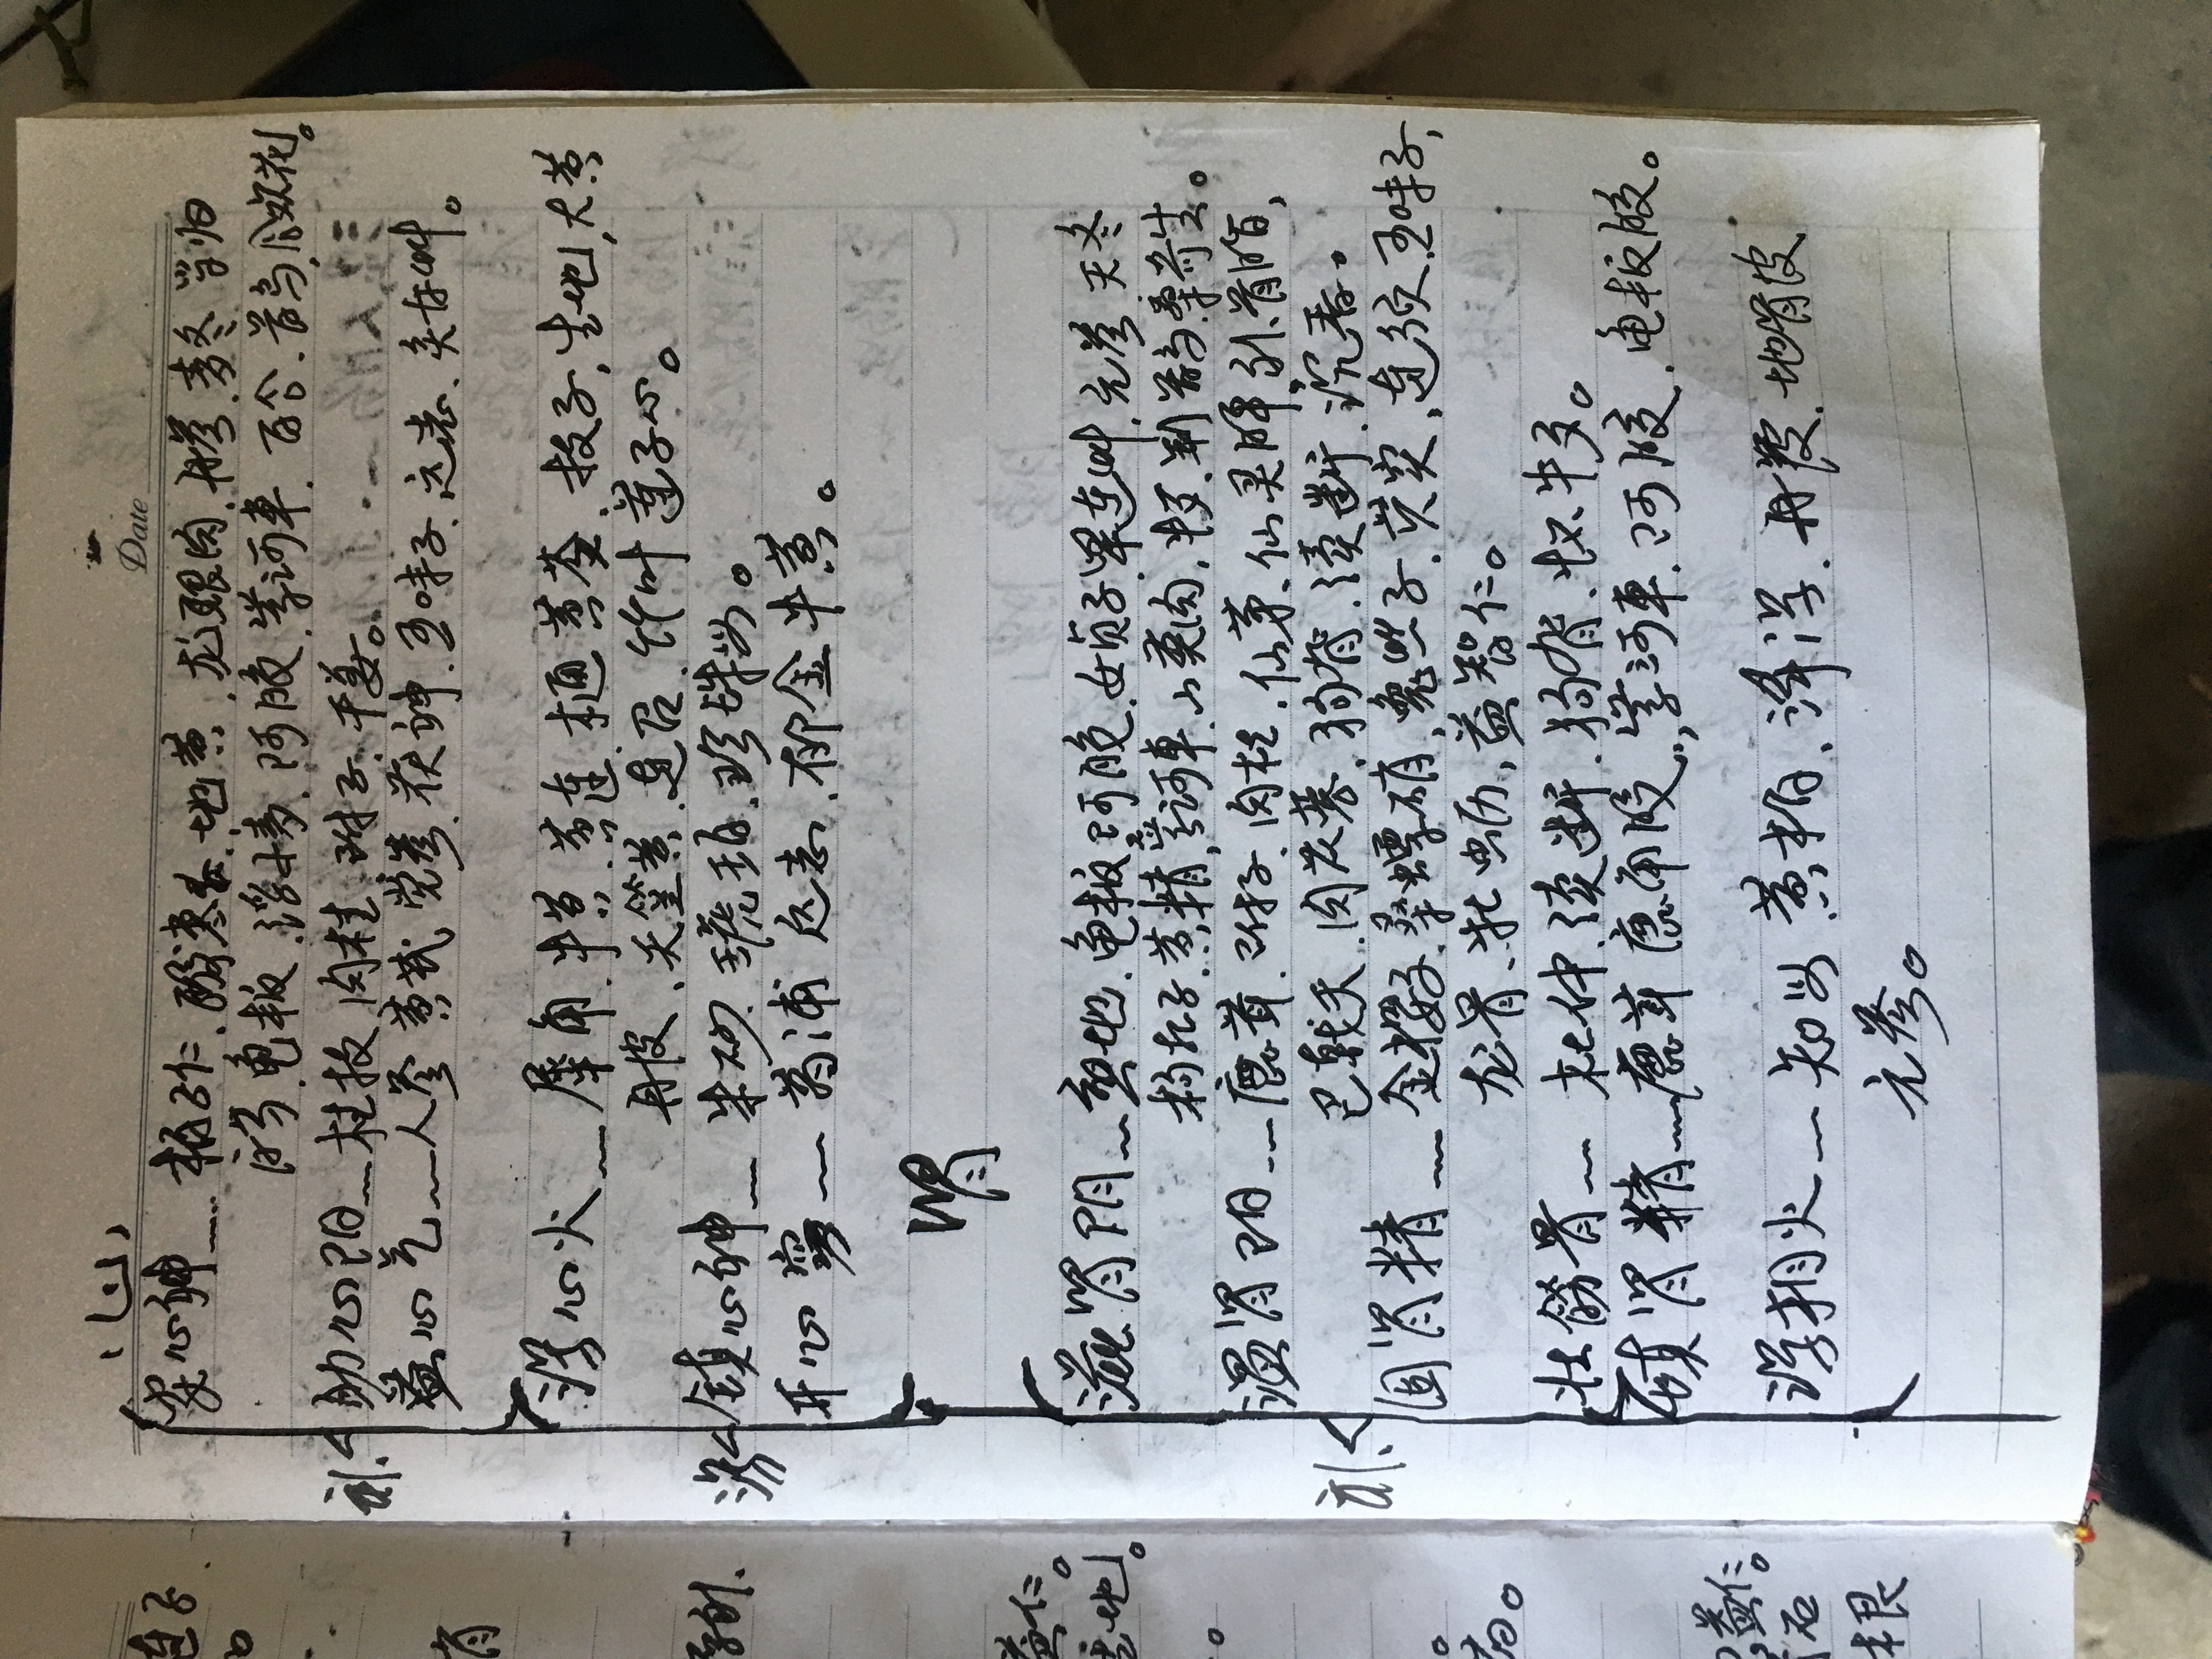 (心)
Date
安心神……柏子仁、酸枣仁、地黄、龙眼肉、丹参、麦冬 当归
白芍、龟板、浮小麦、阿胶、紫河車、百合、首乌、合欢花。
补 助心阳……桂枝、肉桂、附子、干姜。
益心气……人参 黄芪 党参、茯神、五味子、远志、炙甘草。
泻心火……犀角、牛黄、黄连、木通 黄芩、枝子,生地,大黄
丹皮、天竺黄、连召、竹叶 莲子心。
泻 镇心神……朱砂、琥珀、珍珠母。
开心窍……菖浦 远志、郁金 牛黄。
肾
滋肾阴……熟地、龟板、阿胶、女贞子、旱连草、元参、天冬
枸杞子、黄精,紫河車、山萸肉,牛夕、制首乌、桑寄生。
温肾阳……鹿茸、附子、肉桂、仙茅、仙灵脾,补骨脂,
巴戟天、肉苁蓉、狗脊、续断、沉香。
补
固肾精……金樱子、桑螵硝,兔丝子、芡实,连须、五味子,
龙骨、牡蛎,益智仁。
壮筋骨……杜仲、续断、狗脊、怀牛夕。
填肾精……鹿茸 鹿角胶、紫河車、阿胶、龟板胶。
泻相火……知母 黄柏、泽泻、丹皮、地骨皮
元参。
连子
肾
益仁。
生地。
益仁。
石
根